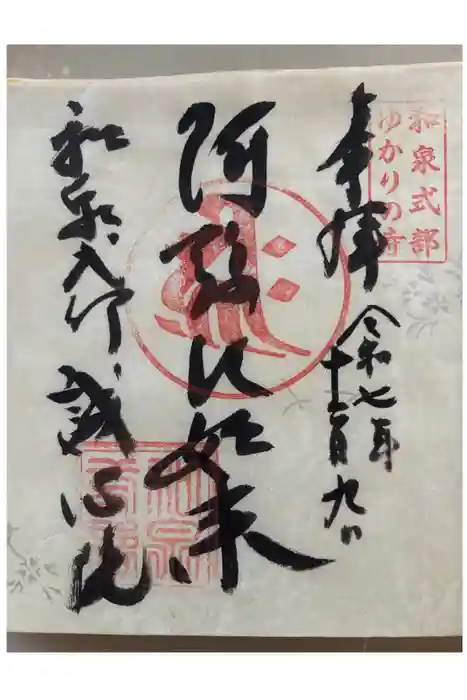 和泉式部
ゆかりの寺
奉拝
令和七年
十二月九日
阿弥陀如来
和泉式部 誠心院